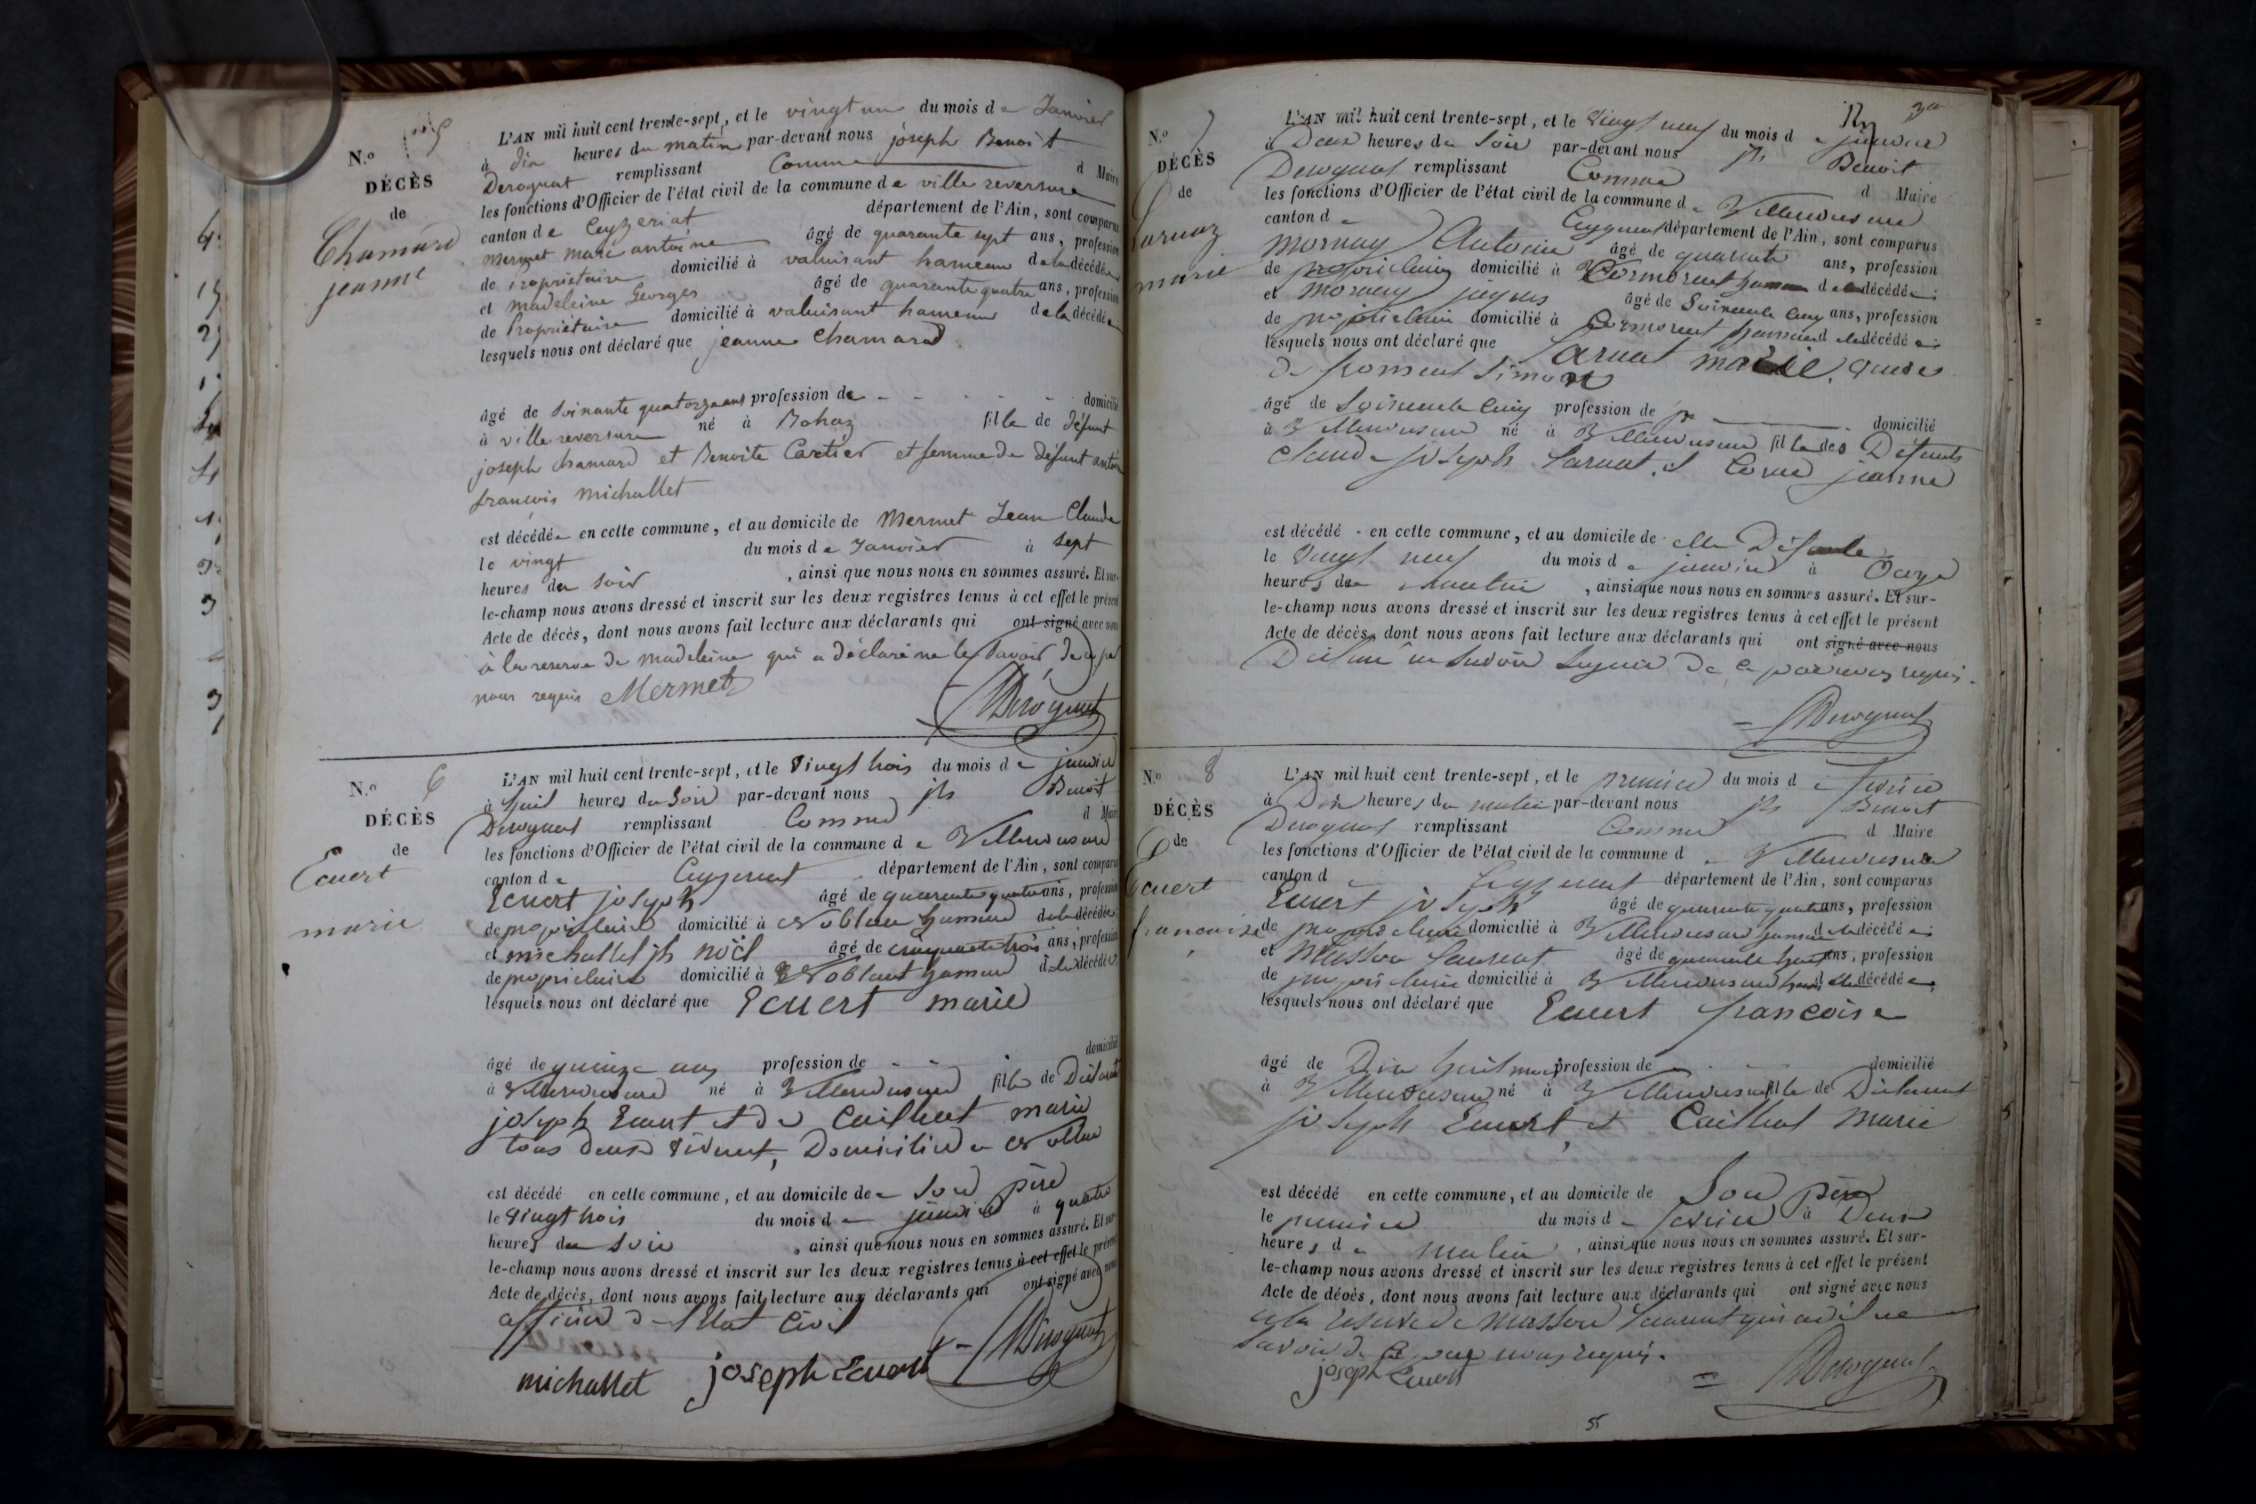 N.º 5
DÉCÈS
de
Chamard
jeanne
L'AN mil huit cent trente-sept, et le vingt un du mois de Janvier
à dix heures du matin par-devant nous joseph Benoit
Derognat remplissant Comme d Maire
les fonctions d'Officier de l'état civil de la commune de ville reversure
canton de Ceyzeriat département de l'Ain, sont comparus
mermet marc antoine âgé de quarante sept ans, profession
de propriétaire domicilié à valuisant hameau de la décédée
et madeleine Georges âgé de quarante quatre ans, profession
de Propriétaire domicilié à valuisant hameau de la décédée
lesquels nous ont déclaré que jeanne Chamard
âgé de soixante quatorze ans profession de domicilié
à ville reversure né à Bohaz fille de défunt
joseph chamard et Benoite Cartier et femme de défunt antoine
françois michallet
est décédée en cette commune, et au domicile de Mermet Jean Claude
le vingt du mois de Janvier à sept
heures du soir, ainsi que nous nous en sommes assuré. Et sur-
le-champ nous avons dressé et inscrit sur les deux registres tenus à cet effet le présent
Acte de décès, dont nous avons fait lecture aux déclarants qui ont signé avec nous
à la reserve de madeleine qui a déclaré ne le savoir, de ce par
nous requis Mermet
Derognat
N.º 6
DÉCÈS
de
Ecuert
marie
L'AN mil huit cent trente-sept, et le vingt trois du mois de janvier
à huit heures du soir par-devant nous jh Benoit
Derognat remplissant Comme d Maire
les fonctions d'Officier de l'état civil de la commune de Villereversure
canton de Ceyzeriat département de l'Ain, sont comparus
Ecuert joseph âgé de quarante quatre ans, profession
de propriétaire domicilié à Noblans hameau de la décédée
et michallet jh noël âgé de cinquante trois ans, profession
de propriétaire domicilié à Noblans hameau de la décédée
lesquels nous ont déclaré que Ecuert marie
âgé de quinze ans profession de domicilié
à Villereversure né à Villereversure fille de Déclarant
joseph Ecuert et de Cailliat marie
tous deux vivent, Domicilié a Noblans
est décédé en cette commune, et au domicile de son père
le vingt trois du mois de janvier à quatre
heures du soir, ainsi que nous nous en sommes assuré. Et sur-
le-champ nous avons dressé et inscrit sur les deux registres tenus à cet effet le présent
Acte de décès, dont nous avons fait lecture aux déclarants qui ont signé avec nous
officier de l'état Civil
michallet joseph Ecuert Derognat
N.º 7
DÉCÈS
de
Carnaz
marie
L'AN mil huit cent trente-sept, et le vingt neuf du mois de janvier
à Deux heures du soir par-devant nous jh Benoit
Derognat remplissant Comme d Maire
les fonctions d'Officier de l'état civil de la commune de Villereversure
canton de Ceyzeriat département de l'Ain, sont comparus
mornay Antoine âgé de quarante ans, profession
de propriétaire domicilié à Cormorent hameau de la décédée
et mornay jacques âgé de soixante cinq ans, profession
de propriétaire domicilié à Cormorent hameau de la décédée
lesquels nous ont déclaré que Carnat marie veuve
de froment simon
âgé de soixante cinq profession de domicilié
à Villereversure né à Villereversure fille des Défunts
Claude joseph Carnat et jeanne
est décédé en cette commune, et au domicile de elle Défunte
le vingt neuf du mois de janvier à onze
heures du matin, ainsi que nous nous en sommes assuré. Et sur-
le-champ nous avons dressé et inscrit sur les deux registres tenus à cet effet le présent
Acte de décès, dont nous avons fait lecture aux déclarants qui ont signé avec nous
Déclaré ne savoir signer de ce par nous requis.
Derognat
N.º 8
DÉCÈS
de
Ecuert
francoise
L'AN mil huit cent trente-sept, et le premier du mois de fevrier
à Dix heures du matin par-devant nous jh Benoit
Derognat remplissant Comme d Maire
les fonctions d'Officier de l'état civil de la commune de Villereversure
canton de Ceyzeriat département de l'Ain, sont comparus
Ecuert joseph âgé de quarante quatre ans, profession
de propriétaire domicilié à Villereversure hameau de la décédée
et Masson laurent âgé de quarante huit ans, profession
de propriétaire domicilié à Villereversure hameau de la décédée
lesquels nous ont déclaré que Ecuert francoise
âgé de Dix huit mois profession de domicilié
à Villereversure né à Villereversure fille de Déclarant
joseph Ecuert, et Cailliat Marie
est décédé en cette commune, et au domicile de son père
le premier du mois de fevrier à Deux
heures de matin, ainsi que nous nous en sommes assuré. Et sur-
le-champ nous avons dressé et inscrit sur les deux registres tenus à cet effet le présent
Acte de décès, dont nous avons fait lecture aux déclarants qui ont signé avec nous
a la reserve de Masson laurent qui a dé ne
savoir de ce par nous requis.
joseph Ecuert Derognat
55